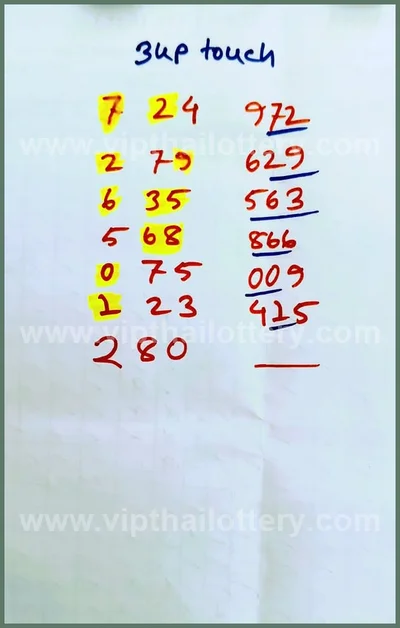 3up touch
7 24 972
www.vipthailottery.com
2 79 629
6 35 563
5 68 866
0 75 009
1 23 415
www.vipthailottery.com
2 80
www.vipthailottery.com